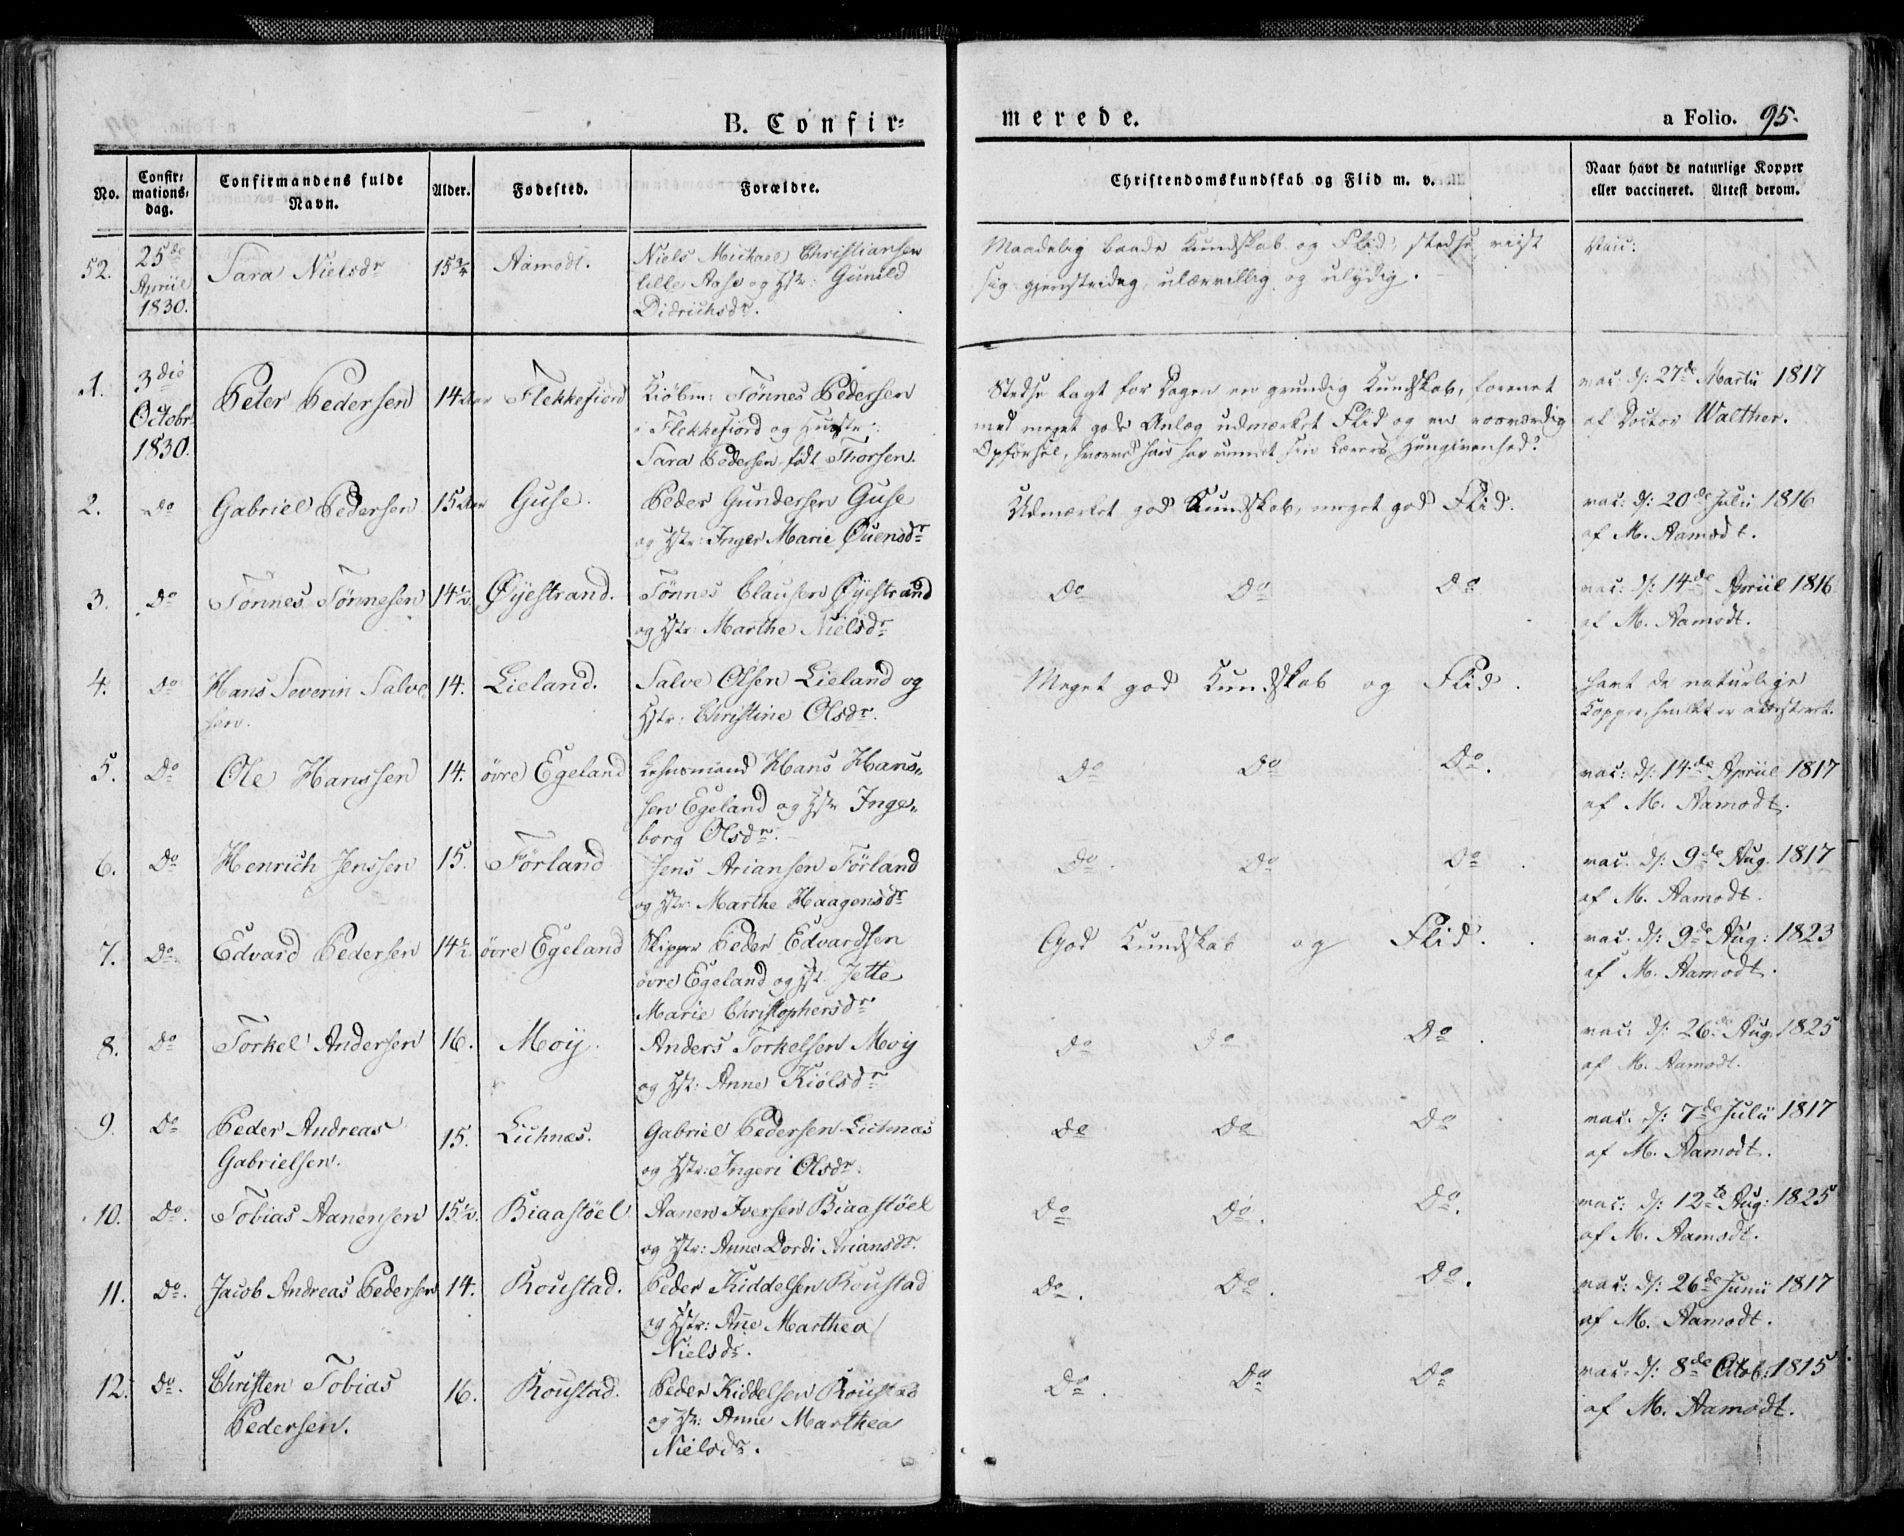 B. Confir-
merede.
a Folio. 95.
No.
Confir-
mations-
dag.
Confirmandens fulde
Navn.
Alder.
Fødested.
Forældre.
Christendomskundskab og Flid m. v.
Naar havt de naturlige Kopper
eller vaccineret. Attest derom.
52.
25de
Apriil
1830.
Sara Nielsdr
15 3/4
Aamodt.
Niels Michael Christiansen
lille Aase og Hstr: Gunild
Didrichsdr.
Maadelig baade Kundskab og Flid; stedse viist
sig gjenstridig, ulærvillig og ulydig.
Vaic:
1.
3die
Octobr
1830.
Peter Pedersen
14 Aar
Flekkefiord
Kiøbm: Tønnes Pedersen
i Flekkefiord og Hustr:
Sara Pedersen født Thorsen.
Stedse lagt for Dagen en grundig Kundskab, forenet
med meget gode Anlæg udmærket Flid og en roesværdig
Opførsel, hvorved han har vundet sin Lærers Hengivenhed.
vac: d: 27de Martii 1817
af Doctor Walther.
2.
Do
Gabriel Pedersen
15 Aar
Guse.
Peder Gundersen Guse
og Hstr: Inger Marie Øuensdr
Udmærket god Kundskab, meget god Flid.
vac: d: 20de Julii 1816
af M. Aamodt.
3.
Do
Tønnes Tønnesen
14 1/2
Øyestrand.
Tønnes Clausen Øyestrand
og Hstr: Marthe Nielsdr
Do Do Do
vac: d: 14de Apriil 1816
af M. Aamodt.
4.
Do
Hans Severin Salve-
sen.
14.
Lieland.
Salve Olsen Lieland og
Hstr: Christine Olsdr.
Meget god Kundskab og Flid.
havt de naturlige
Kopper, hvilket er attesteret.
5.
Do
Ole Hanssen
14.
øvre Egeland
Lehnsmand Hans Hans-
sen Egeland og Hstr Inge-
borg Olsdr.
Do Do Do.
vac: d: 14de Apriil 1817
af M. Aamodt.
6.
Do
Henrich Jenssen
15.
Førland
Jens Ariansen Førland
og Hstr: Marthe Haagensdr
Do. Do Do.
vac. d: 9de Aug. 1817
af M. Aamodt.
7.
Do.
Edvard Pedersen
14 1/2
øvre Egeland
Skipper Peder Edvardsen
øvre Egeland og Hst. Jette
Marie Christophersdr
God Kundskab og Flid.
vac. d: 9de Aug: 1823
af M. Aamodt.
8.
Do
Torkel Andersen
16.
Moij.
Anders Torkelsen Moij
og Hst: Anne Kiølsdr
Do Do Do.
vac: d: 26de Aug. 1825
af M. Aamodt.
9.
Do
Peder Andreas
Gabrielsen.
15.
Lichnæs.
Gabriel Pedersen Lichnæs
og Hstr: Ingeri Olsdr.
Do Do Do
vac. d: 7de Julii 1817
af M. Aamodt.
10.
Do.
Tobias Aanensen
15 1/2.
Biaastøel
Aanen Iversen Biaastøel
og Hstr: Anne Dordi Ariansdr.
Do Do. Do.
vac: d: 12te Aug: 1825
af M. Aamodt.
11.
Do.
Jacob Andreas Pedersen
14.
Roustad.
Peder Kiddelsen Roustad
og Hstr: Ane Marthea
Nielsdr.
Do. Do. Do.
vac: d: 26de Junii 1817
af M. Aamodt.
12.
Do.
Christen Tobias
Pedersen.
16.
Roustad.
Peder Kiddelsen Roustad
og Hstr: Anne Marthea
Nielsdr.
Do. Do Do
vac. d: 8de Octob: 1815
af M. Aamodt.